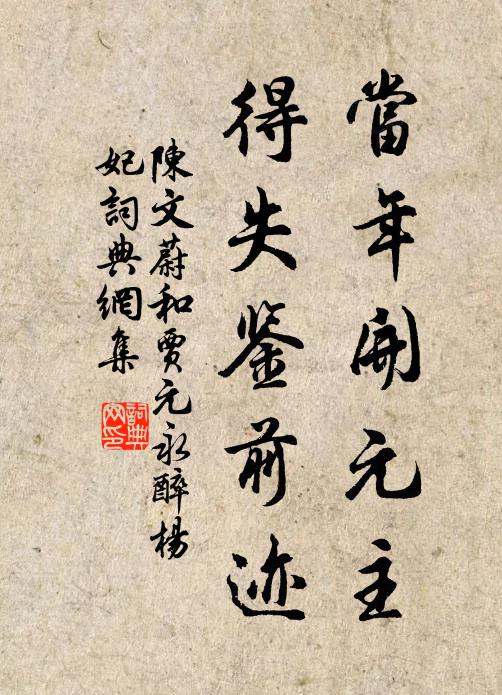 當年開元主
得失鉴前迹
陳文蔚和賈元永醉楊
妃詞典網集
詞典
网印